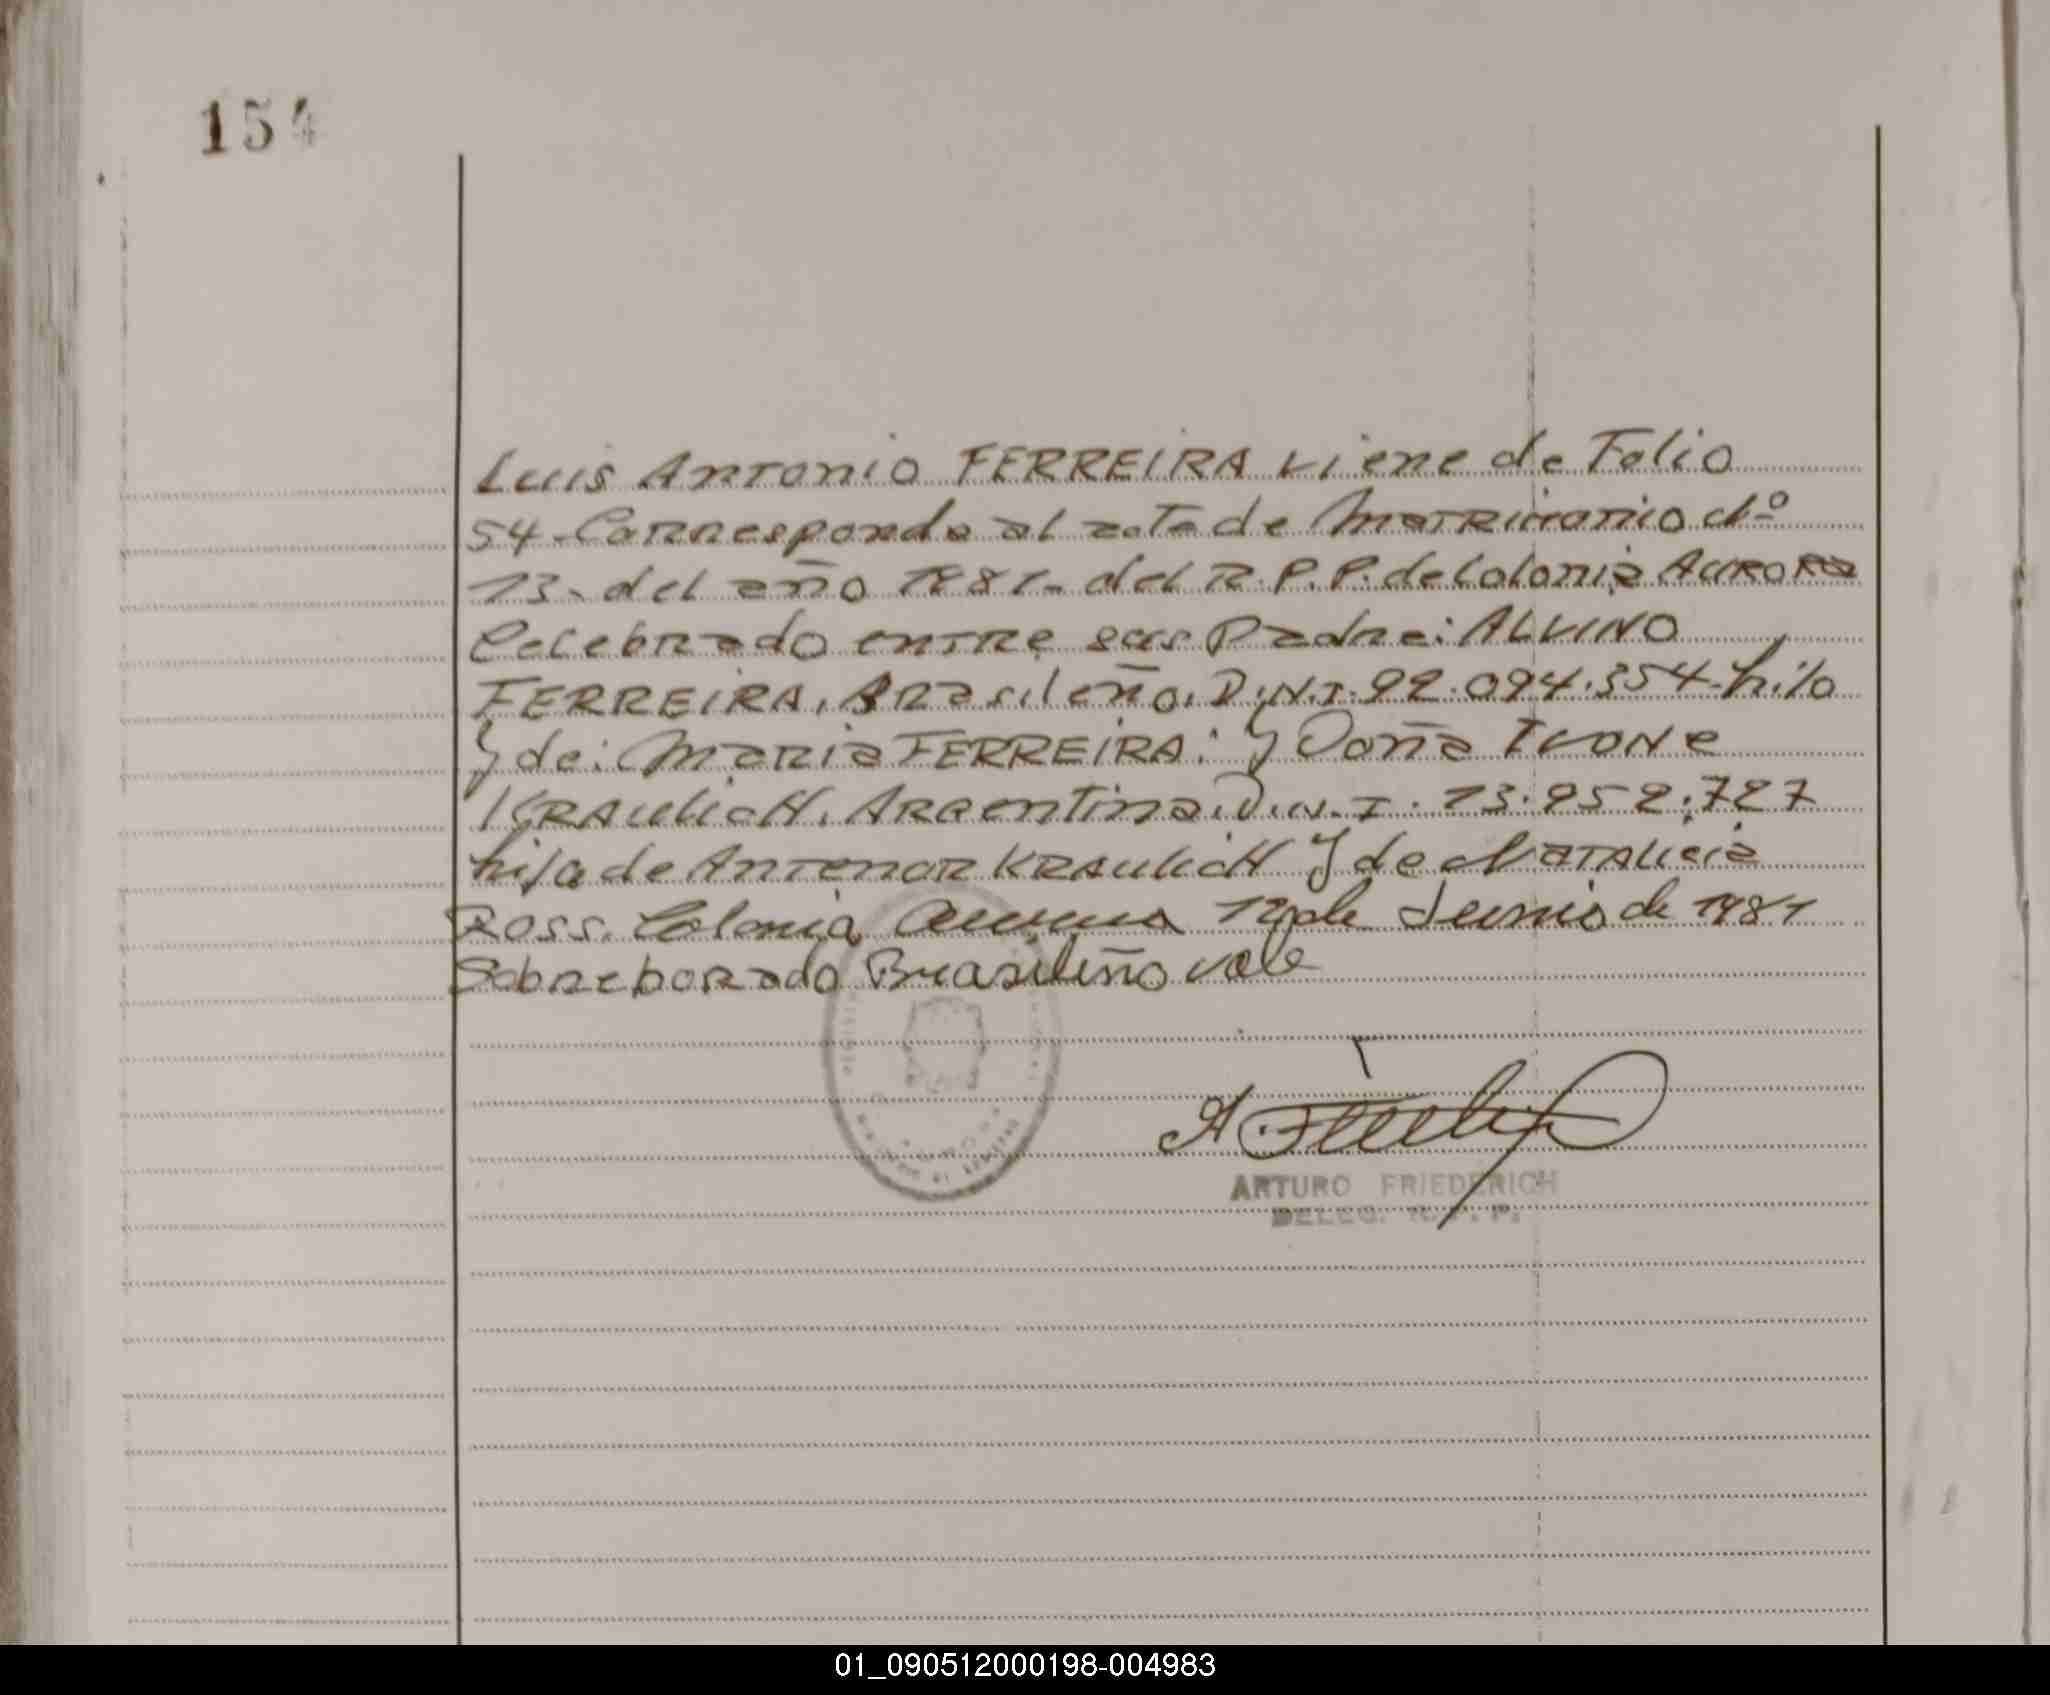 154
Luis Antonio FERREIRA viene de Folio
54-Corresponde al acta de Matrimonio Nº
13-del año 1981-del R.P.P. de Colonia Aurora
Celebrado entre sus Padre: ALVINO
FERREIRA, Brasileño, D.N.I. 92.094.354-hijo
y de: Maria FERREIRA: y Doña Ivone
KRAulicH, Argentina, D.N.I. 13.952.727
hija de Antenor KRAulicH y de NATAlicia
Ross. Colonia Aurora 12 de Junio de 1981
Sobreborado Brasileño vale
ARTURO FRIEDERICH
DELEG. R.P.P.
01_090512000198-004983